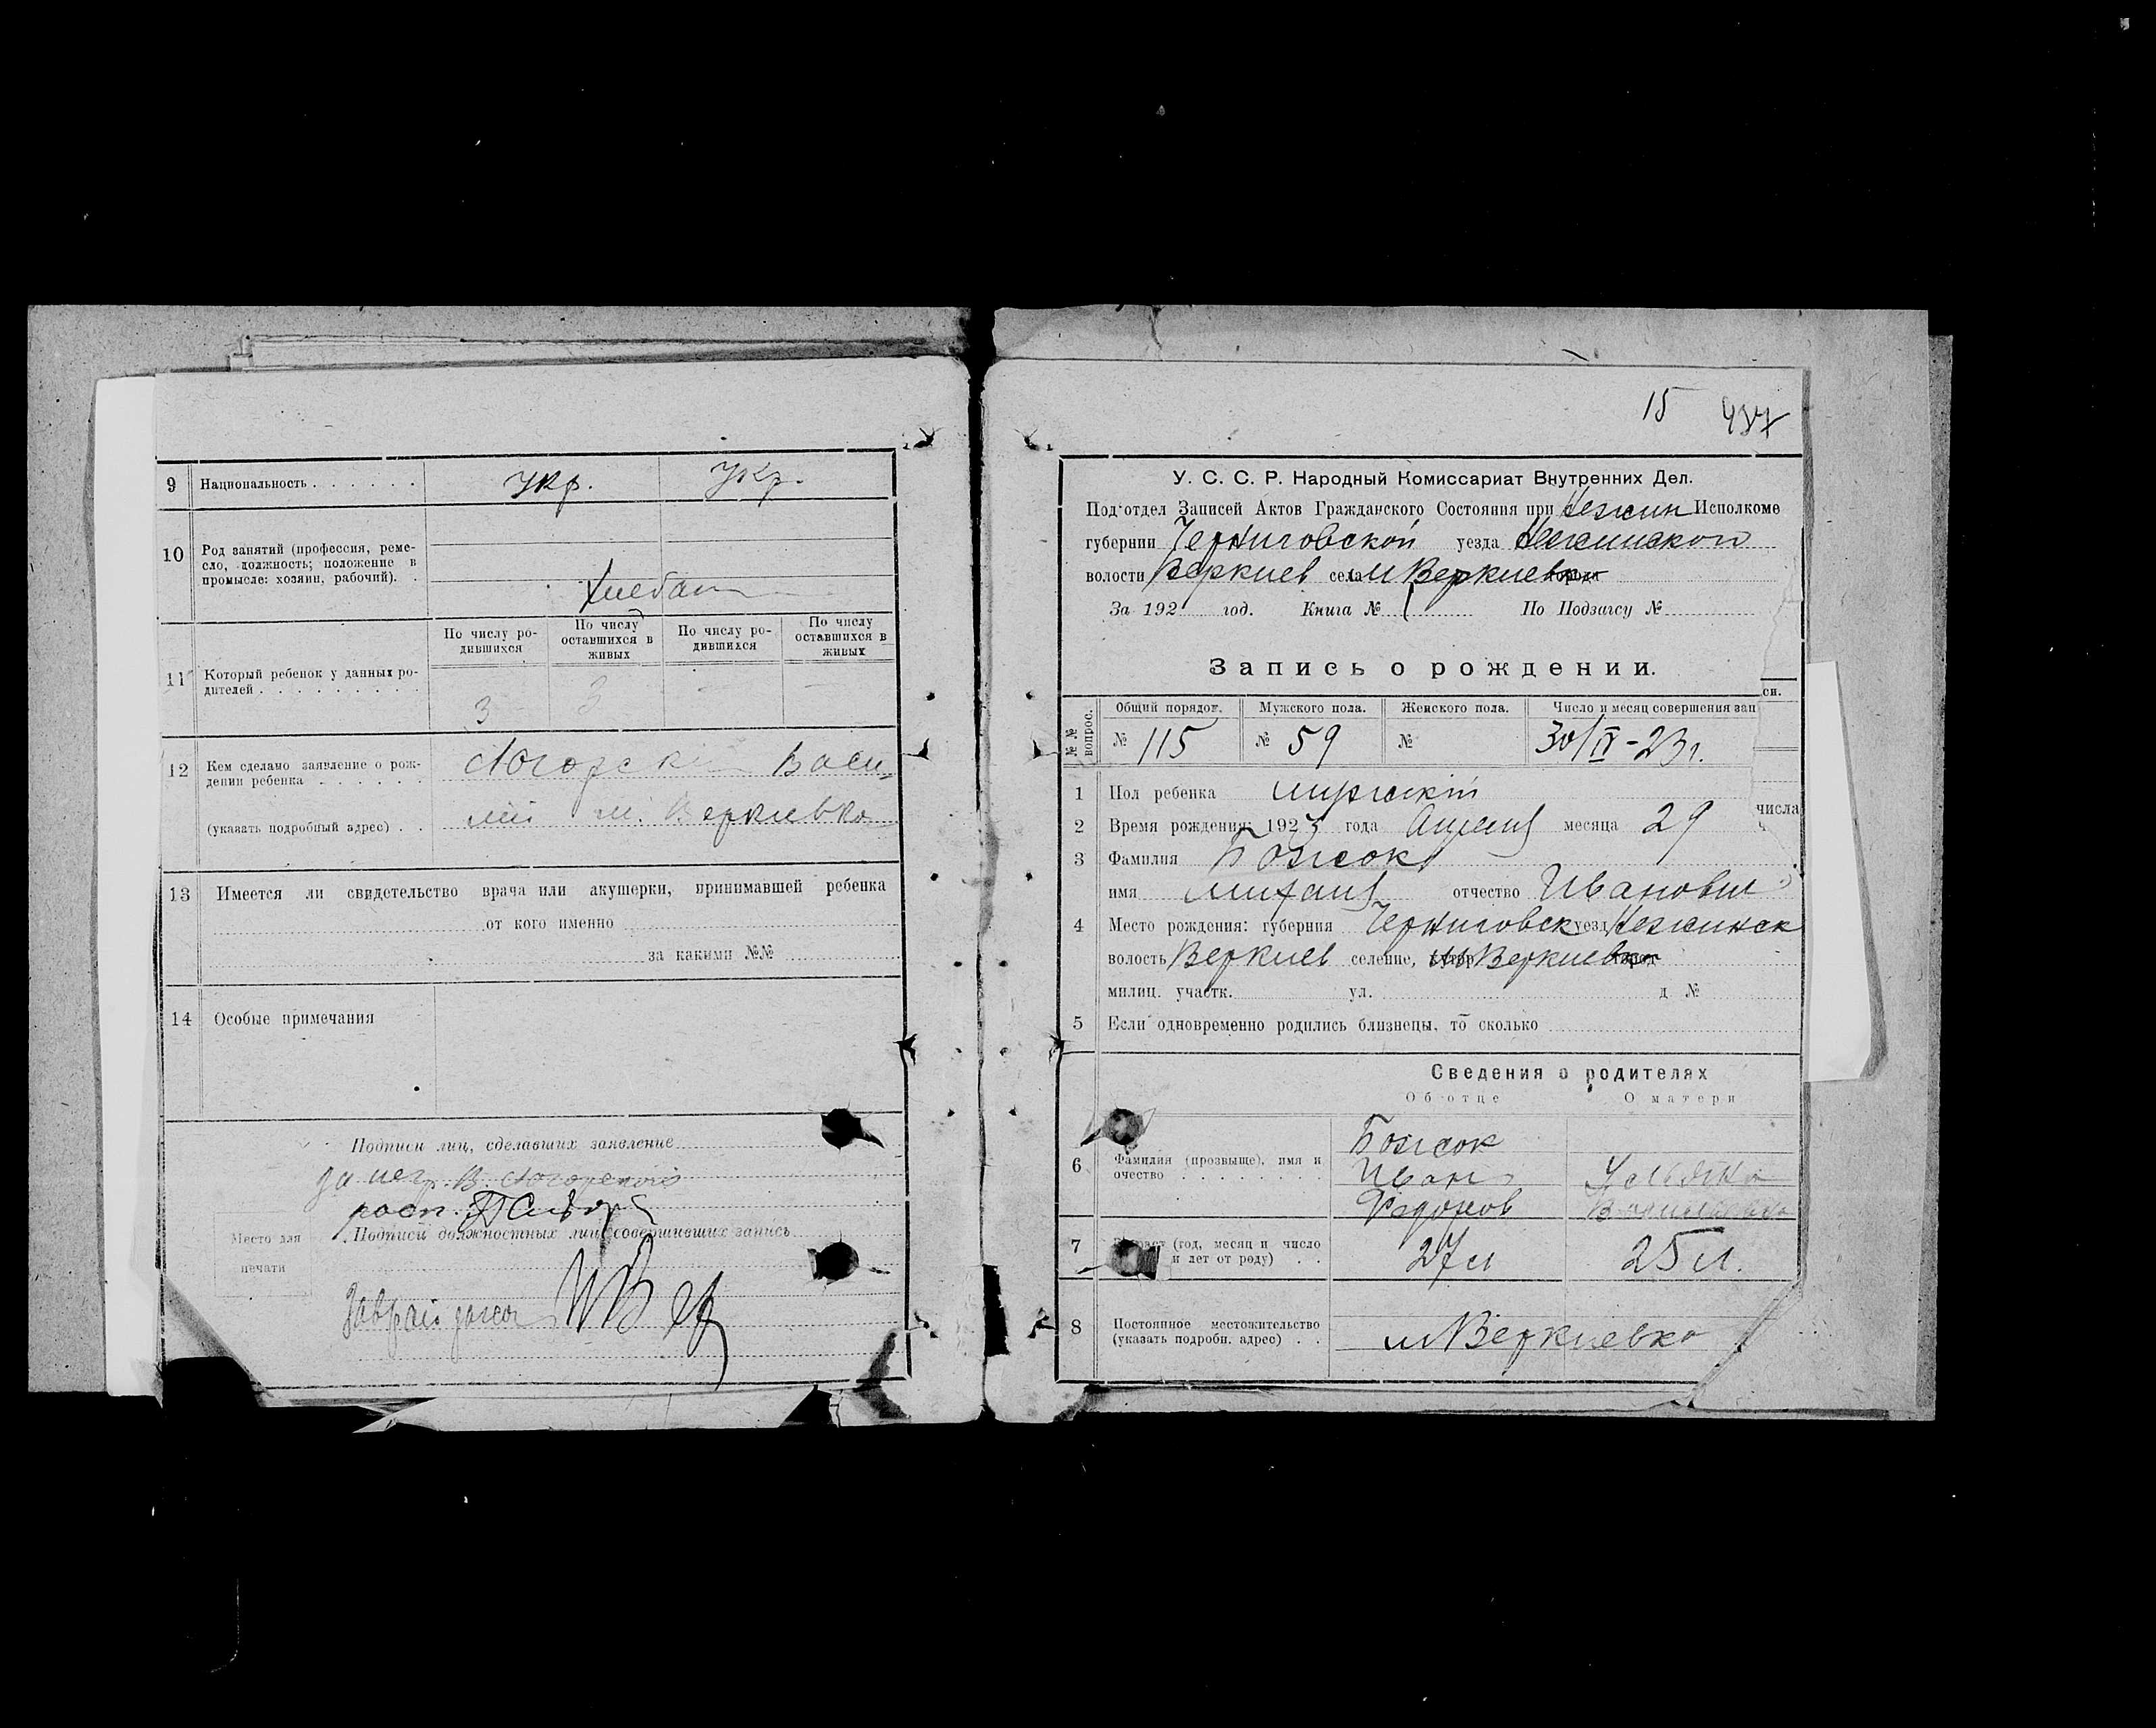 9 Национальность . . . . . . укр. укр.
10 Род занятий (профессия, реме-
сло, должность; положение в
промысле: хозяин, рабочий). .
По числу ро-
дившихся
По числу
оставшихся в
живых
По числу ро-
дившихся
По числу
оставшихся в
живых
11 Который ребенок у данных ро-
дителей . . . . . . . . .
3 3 - -
12 Кем сделано заявление о рож-
дении ребенка . . . . . . Васи-
(указать подробный адрес) . . лій м. Веркиевка
13 Имеется ли свидетельство врача или акушерки, принимавшей ребенка
от кого именно
за какими №№
14 Особые примечания
Подписи лиц, сделавших заявление
за негр. В.
расп.
Подписи должностных лиц, совершивших запись
Место для
печати
15 437
У. С. С. Р. Народный Комиссариат Внутренних Дел.
Подотдел Записей Актов Гражданского Состояния при Нежин Исполкоме
губернии Черниговской уезда Нежинской
волости Веркиев села м Веркиевка города
За 192 год. Книга № По Подзагсу №
Запись о рождении.
№ № вопрос.
Общий порядок. Мужского пола. Женского пола. Число и месяц совершения зап
си.
№ 115 № 59 № 30/IV-23г.
1 Пол ребенка мужский
2 Время рождения: 1923 года Апреля месяца 29 числа
3 Фамилия Божок
имя Михаил отчество Иванович
4 Место рождения: губерния Черниговск уезд Нежинск
волость Веркиев селение, хутор м Веркиевка
милиц. участк. ул. д №
5 Если одновременно родились близнецы, то сколько
Сведения о родителях
Об отце О матери
6 Фамилия (прозвыще), имя и
очество . . . . . . . .
Божок
Иван Ульяна
Федоров
7 (год, месяц и число
и лет от роду) . . 27 л 25 л.
8 Постоянное местожительство
(указать подробн. адрес) . . м Веркиевка